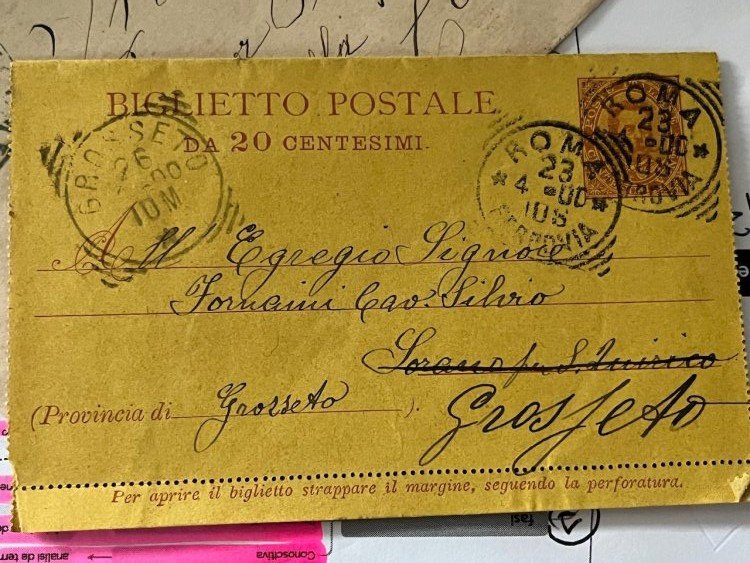 BIGLIETTO POSTALE
DA 20 CENTESIMI.
GROSSETO
26
10M
ROMA
23
4 - 00
10S
FERROVIA
ROMA
23
4 - 00
10S
FERROVIA
All Egregio Signore
Fornaini Cav. Silvio
Sorano per S. Quirico
(Provincia di Grosseto ).
Grosseto
Per aprire il biglietto strappare il margine, seguendo la perforatura.
Conoscitiva
analisi de
fasi